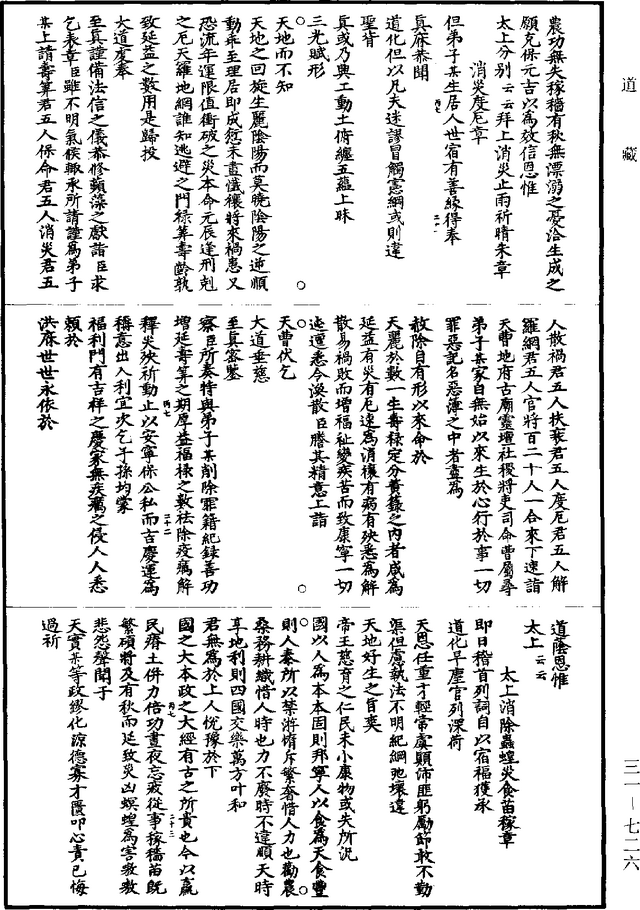 道藏
農功無失稼穡有秋無漂溺之憂洽生成之
願克保元吉以為效信恩惟
太上分別云云拜上消災止雨祈晴朱章
消災度厄章
但弟子某生居人世宿有善緣得奉
真庥恭聞
道化但以凡夫迷謬冒觸憲網或則違
聖背
真或乃興工動土俯纏五蘊上昧
三光賦形
天地而不知
天地之回旋生麗陰陽而莫曉陰陽之逆順
動乖至理居即成愆未盡懺禳將來禍患又
恐流年運限值衝破之災本命元辰逢刑剋
之厄天羅地網誰知逃避之門祿筭壽齡孰
致延益之數用是歸投
大道虔奉
至真謹備法信之儀恭修蘋藻之獻詣臣求
乞表章臣雖不明氣候輒承所請謹為弟子
某上請壽筭君五人保命君五人消災君五
人散禍君五人扶衰君五人度厄君五人解
羅網君五人官將百二十人一合來下速詣
天曹地府古廟靈壇社稷將吏司命曹屬尋
弟子某家自無始以來生於心行於事一切
罪惡記名惡簿之中者盡為
赦除自有形以來命於
天麗於數一生壽祿定分黃籙之內者咸為
延益有災有厄速為消禳有病有殃悉為解
散易禍敗而增福祉變疾苦而致康寧一切
迍運悉令渙散臣謄其精意上詣
天曹伏乞
大道垂慈
至真密鑒
察臣所奏特與弟子某削除罪籍紀錄善功
增延壽筭之期厚益福祿之數祛除疫癘解
釋災殃祈動止以安寧保公私而吉慶運為
稱意出入利宜次乞子孫均蒙
福利門有吉祥之慶家無疾癘之侵人人悉
賴於
洪庥世世永依於
道蔭恩惟
太上云云
太上消除蟲蝗災食苗稼章
即日稽首列詞自以宿福獲承
道化早塵官列深荷
天恩任重才輕常虞顛沛匪躬勵節敢不勤
渠但慮執法不明紀綱弛壞違
天地好生之旨奭
帝王慈育之仁民未小康物或失所況
國以人為本本固則邦寧人以食為天食豐
則人泰所以禁游惰斥繁奢惜人力也勸農
桑務耕織惜人時也力不廢時不違順天時
享地利則四國交樂萬方叶和
君無為於上人悅豫於下
國之大本政之大經有古之所貴也今以羸
民瘠土併力倍功晝夜忘疲從事稼穡苗既
繁碩將及有秋而延致災凶螟蝗為害嗷嗷
悲怨聲聞于
天實某等政繆化涼德寡才匱叩心責己悔
過祈
三一－七二六